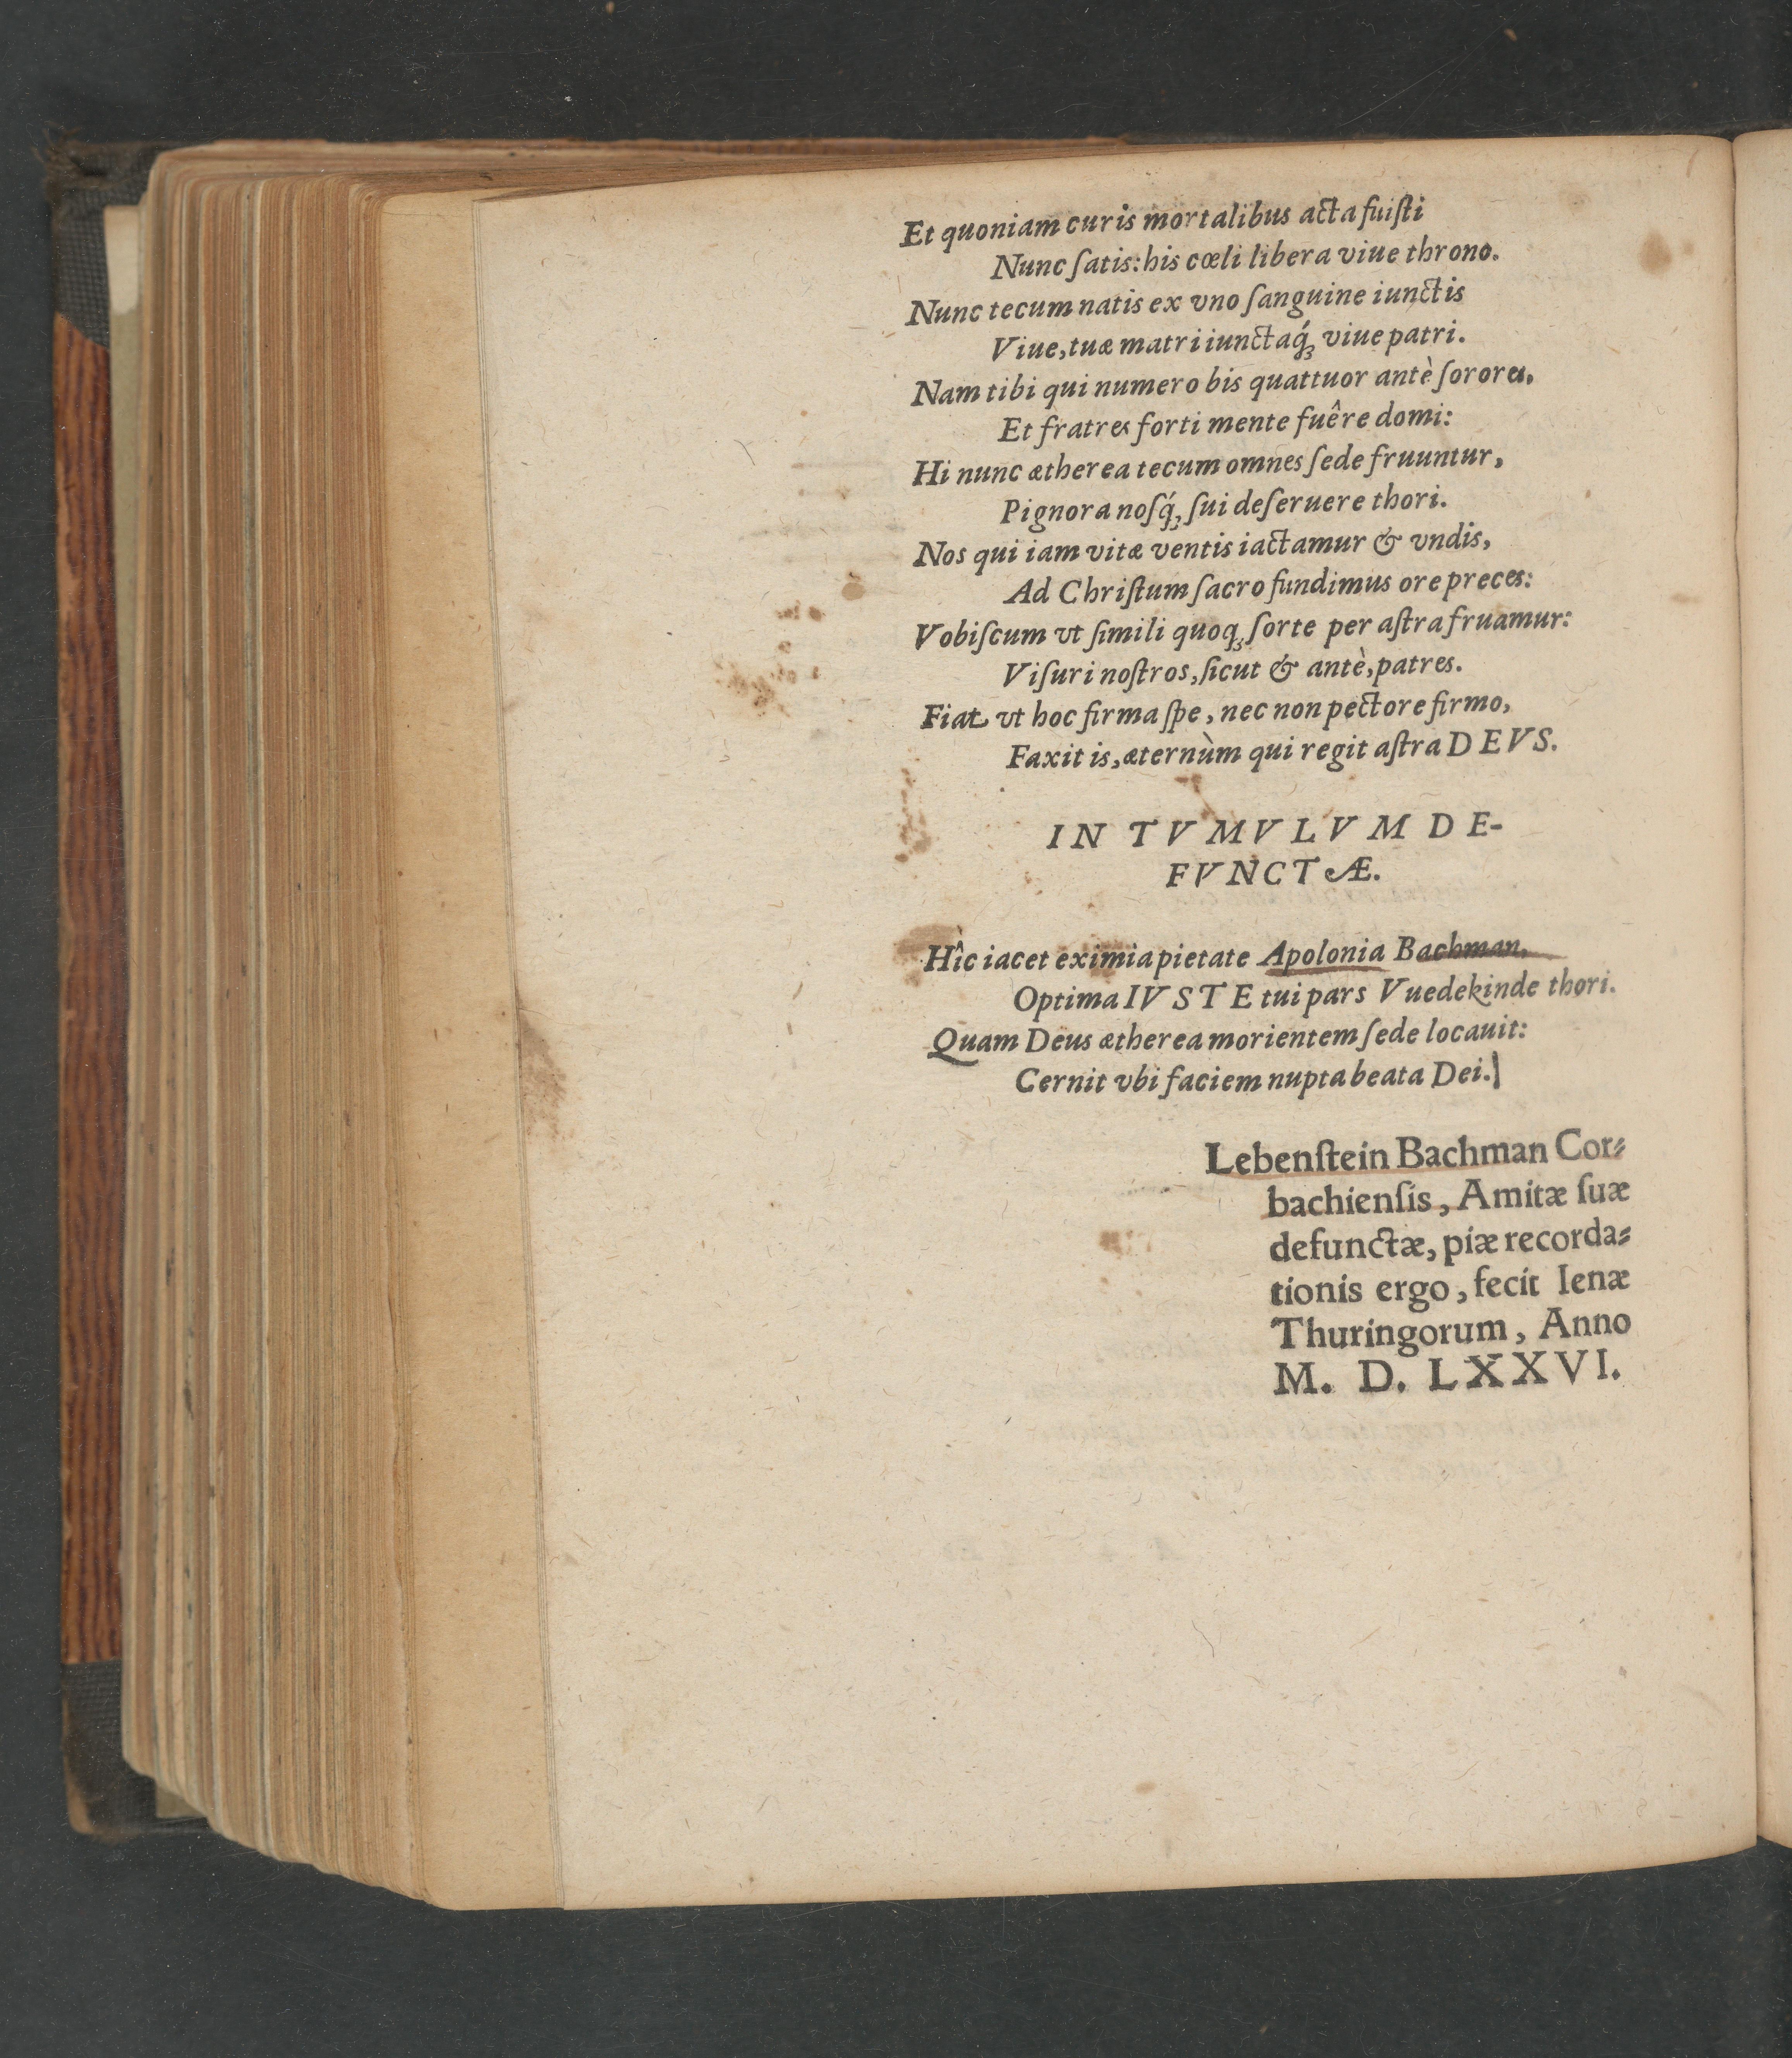 Et quoniam curis mortalibus acta fuiſti
Nunc ſatis: his cœli libera viue throno.
Nunc tecum natis ex vno ſanguine iunctis
Viue, tuæ matri iunctaq́ꝫ viue patri.
Nam tibi qui numero bis quattuor antè ſorores,
Et fratres forti mente fuêre domi:
Hi nunc ætherea tecum omnes ſede fruuntur,
Pignora noſq́ꝫ ſui deſeruere thori.
Nos qui iam vitæ ventis iactamur & vndis,
Ad Chriſtum ſacro fundimus ore preces:
Vobiſcum vt ſimili quoqꝫ ſorte per aſtra fruamur:
Viſuri noſtros, ſicut & antè, patres.
Fiat vt hoc firma ſpe, nec non pectore firmo,
Faxit is, æternùm qui regit aſtra DEVS.
IN TVMVLVM DE-
FVNCTÆ.
Hîc iacet eximia pietate Apolonia Bachman,
Optima IVSTE tui pars Vuedekinde thori.
Quam Deus ætherea morientem ſede locauit:
Cernit vbi faciem nupta beata Dei.
Lebenſtein Bachman Cor⸗
bachienſis, Amitæ ſuæ
defunctæ, piæ recorda⸗
tionis ergo, fecit Ienæ
Thuringorum, Anno
M. D. LXXVI.